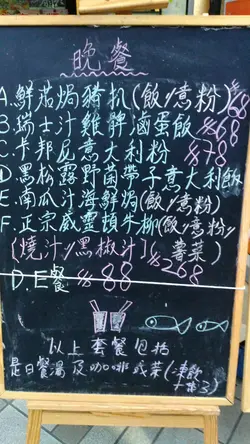 晚餐
A.鮮茄焗豬扒(飯/意粉)$68
B.瑞士汁雞髀滷蛋飯$68
C.卡邦尼意大利粉$78
D.黑松露野菌帶子意大利飯
E.南瓜汁海鮮焗(飯/意粉)
F.正宗威靈頓牛柳(飯/意粉/
(燒汁/黑椒汁) 薯菜)
$268
D.E餐 $88
以上套餐包括
是日餐湯及咖啡或茶(凍飲